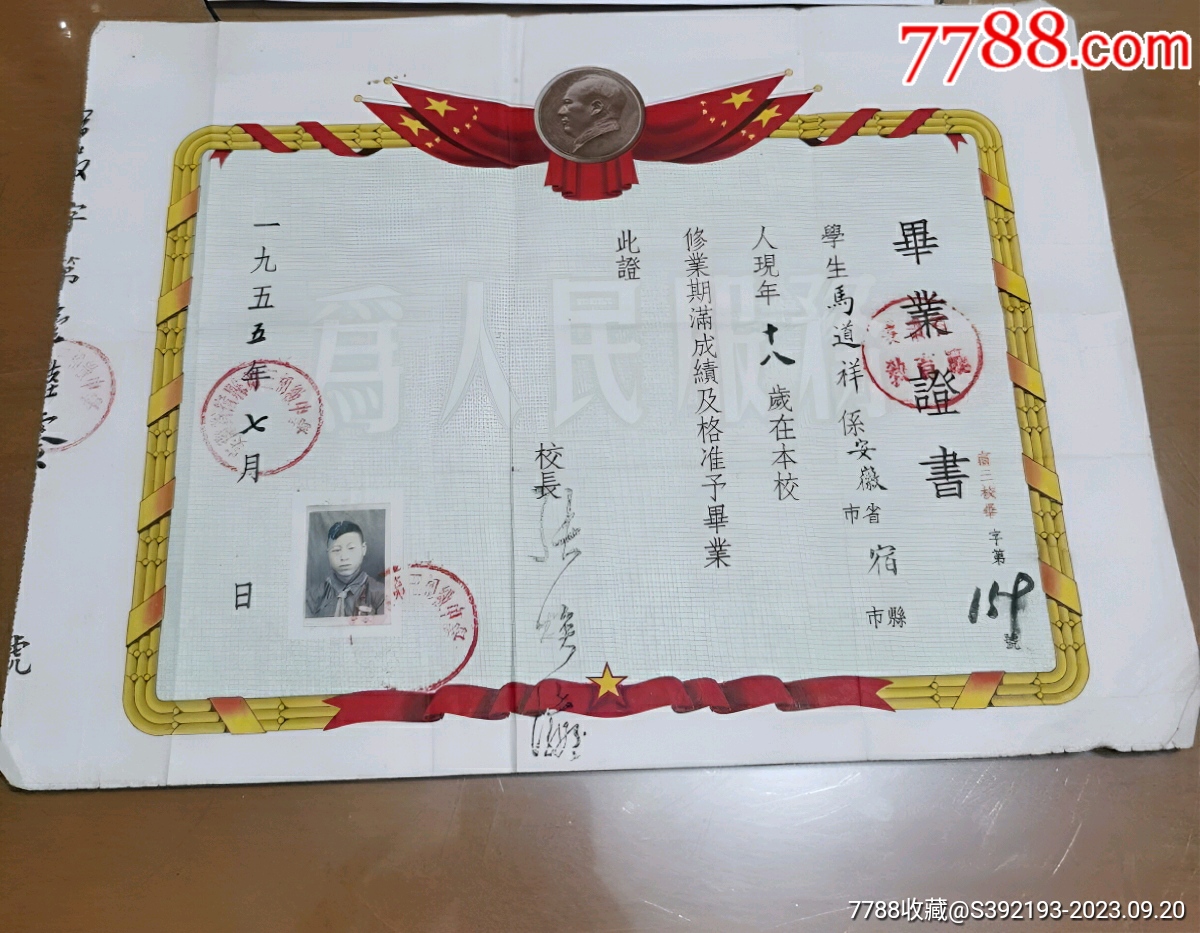 7788.com
畢業證書
宿二校畢字第159號
學生馬道祥係安徽省市宿縣市
人現年十八歲在本校
修業期滿成績及格准予畢業
此證
校長
一九五五年七月 日
為人民服務
字第
號
7788收藏@S392193-2023.09.20